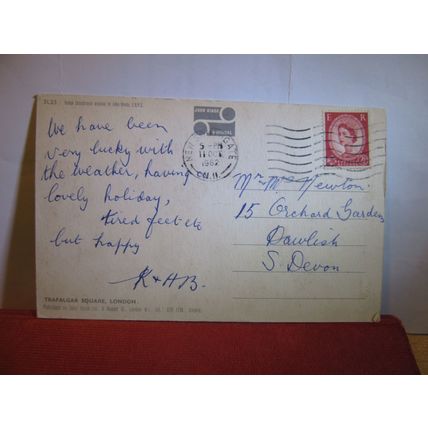 We have been
very lucky with
the weather, having
lovely holiday,
tired feet etc
but happy
K + HB.
TRAFALGAR SQUARE, LONDON.
JOHN HINDE
ORIGINAL
NEW
5 - PM
11 OCT
1962
E R
Mr Mrs Newton.
15 Orchard Gardens
Dawlish
S. Devon